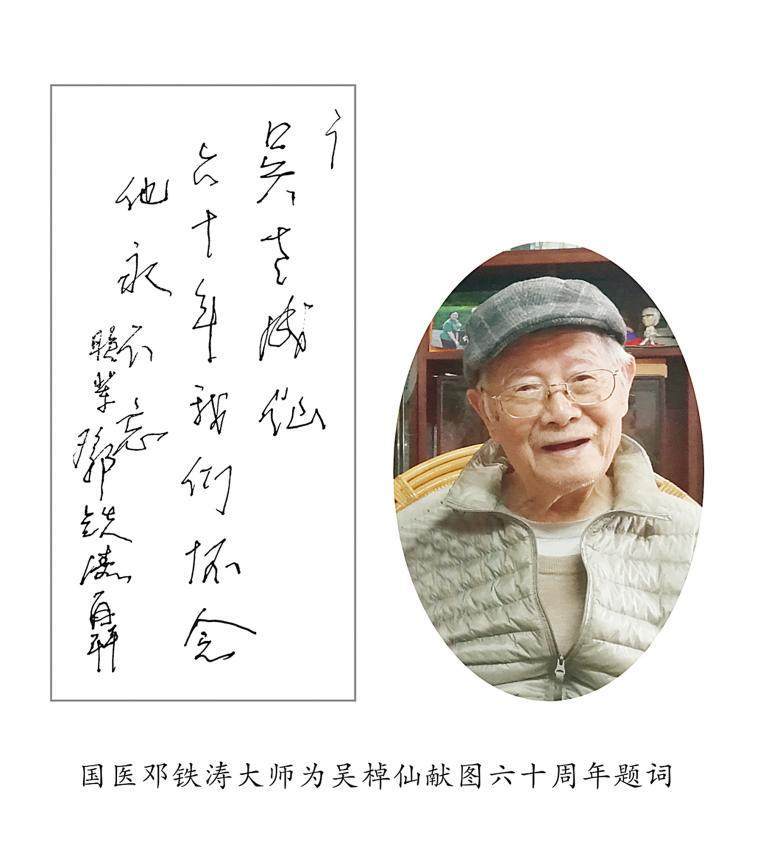 吴老仙
六十年我们怀念
他永不忘
邓铁涛
国医邓铁涛大师为吴棹仙献图六十周年题词